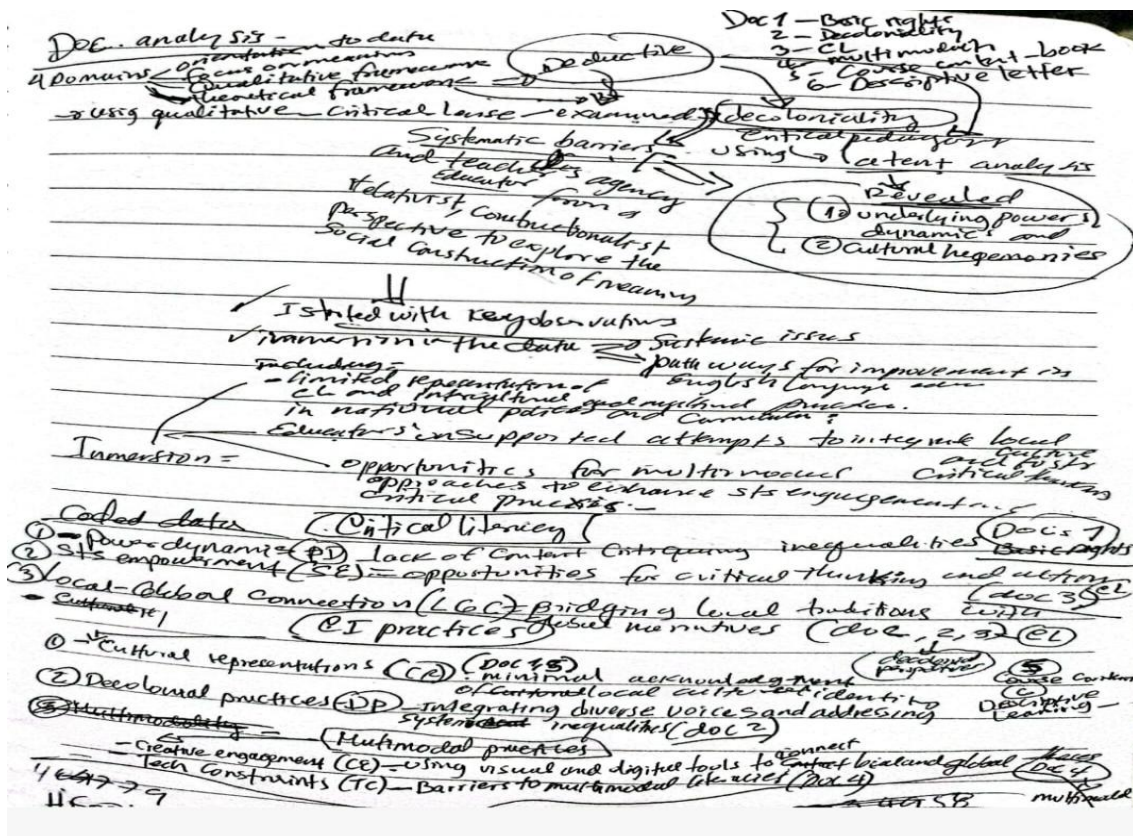 Doc. analysis -
Doc 1 - Basic rights
2 - Decoloniality
3 - CL
4 - multimodality
5 - Course content - book
6 - Descriptive letter
4 Domains
orientation to data
focus on meaning
qualitative framework
theoretical framework
Deductive
using qualitative critical lense - examined decoloniality
critical pedagogy
Systematic barriers using latent analysis
and teachers agency
Educator from a
Relativist, Constructionalist
perspective to explore the
Social Construction of meaning
Revealed
① underlying powers
dynamics and
② Cultural hegemonies
I started with key observations
immersion in the data Systemic issues
pathways for improvement in
English language
including -
- limited representation of
CL and intercultural and
in national policies and Curriculum
- Educators' unsupported attempts to integrate local
culture
and foster
critical
Immersion =
opportunities for multimodal
approaches to enhance sts engagement and
critical praxis.
Coded data (Critical literacy) Docs 1
① Power dynamics (PD) lack of Content Critiquing inequalities Basic rights
② Sts empowerment (SE) = opportunities for critical thinking and action
(doc 3) CL
③ Local-Global Connection (LGC) = Bridging local traditions with
global narratives (doc, 2, 3) CL
(CI practices)
① Cultural representations (CR) - minimal acknowledgment
of local culture identity
decolonial
perspective
5
Course Content
② Decolonial practices - DP - Integrating diverse voices and addressing
inequalities (doc 2)
Descriptive
③ Multimodality -
Multimodal practices
- Creative engagement (CE) - using visual and digital tools to connect local and global
Doc 4
Tech Constraints (TC) - Barriers to multimodal literacies (Doc 4)